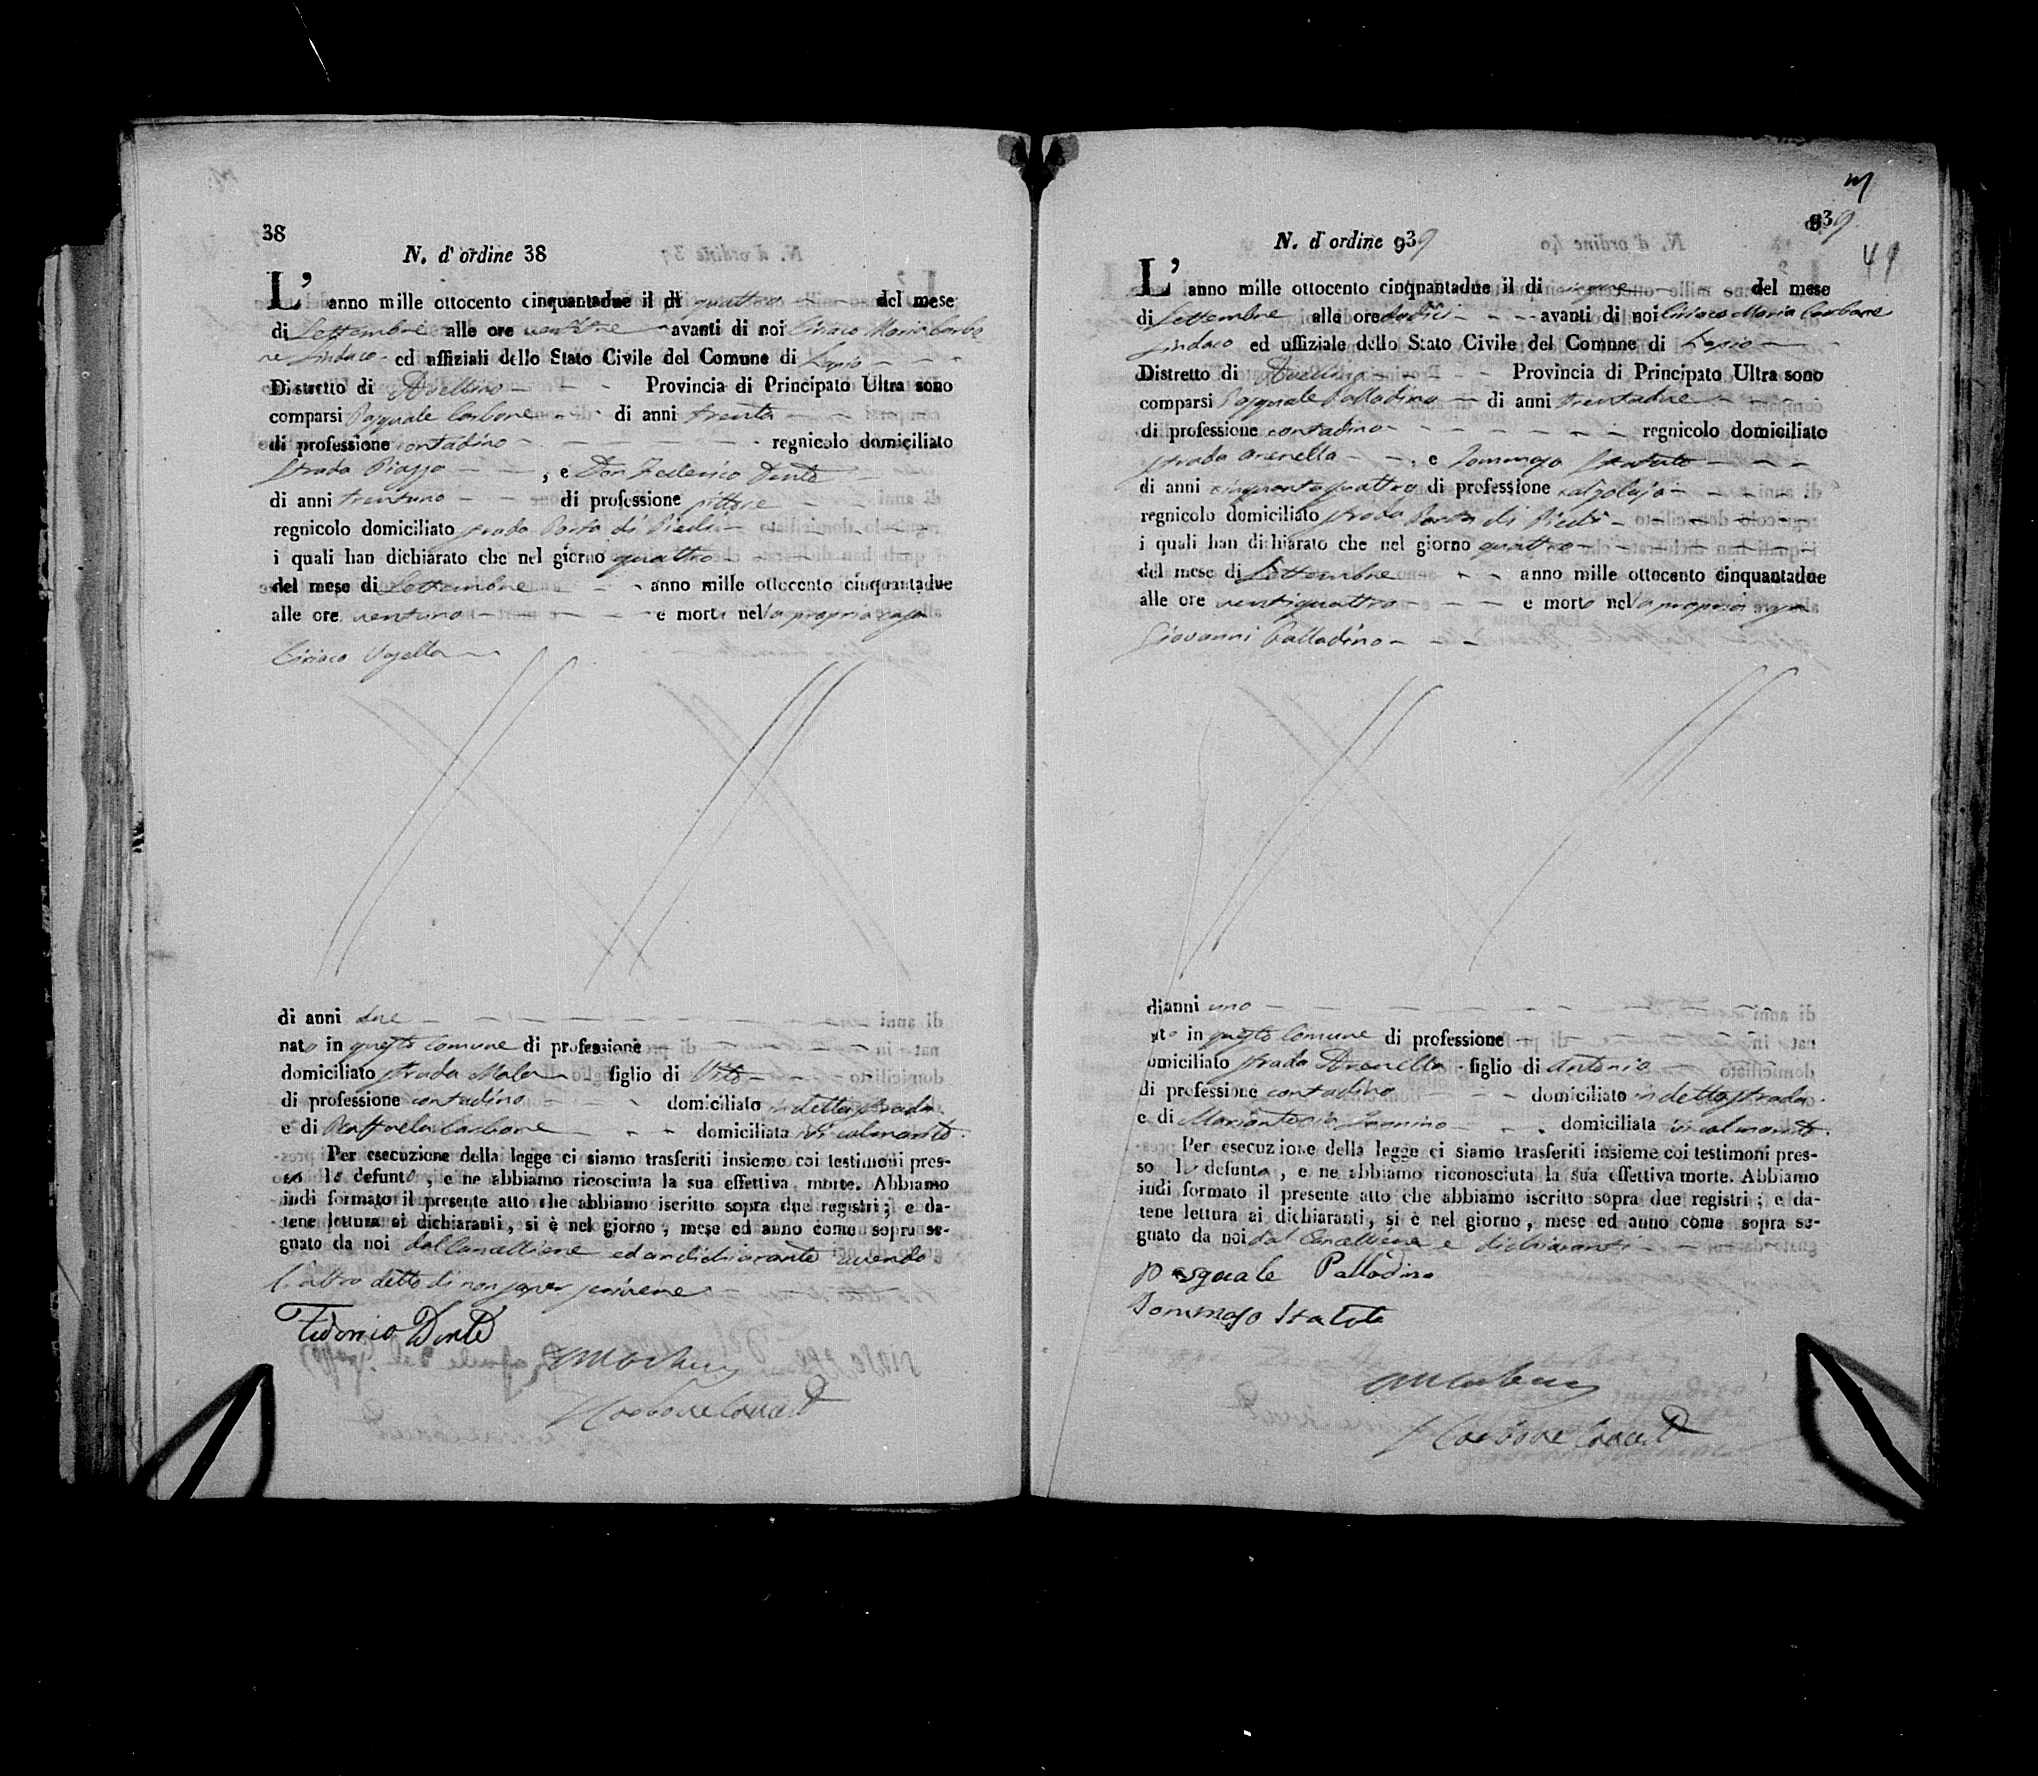 38
N. d'ordine 38
L' anno mille ottocento cinquantadue il dì quattro del mese
di Settembre alle ore ventitre avanti di noi Ciriaco Maria Carbo
ne Sindaco ed uffiziali dello Stato Civile del Comune di Lapio
Distretto di Avellino Provincia di Principato Ultra sono
comparsi Pasquale Carbone di anni trenta
di professione contadino regnicolo domiciliato
strada Piazza , e Don Federico Dente
di anni trentuno di professione pittore
regnicolo domiciliato strada Porta di Piedi
i quali han dichiarato che nel giorno quattro
del mese di Settembre anno mille ottocento cinquantadue
alle ore ventuno e morto nella propria casa
Ciriaco Vozella
di anni due
nato in questo Comune di professione
domiciliato strada Mala figlio di Vito
di professione contadino domiciliato in detta strada
e di Raffaela Carbone domiciliata
Per esecuzione della legge ci siamo trasferiti insieme coi testimoni pres-
so lo defunto , e ne abbiamo ricosciuta la sua effettiva morte. Abbiamo
indi formato il presente atto che abbiamo iscritto sopra due registri ; e da-
tene lettura ai dichiaranti, si è nel giorno , mese ed anno come sopra se-
gnato da noi dal Cancelliere ed un dichiarante avendo
l'altro detto di non saper scrivere
Federico Dente
Carbone Canc
39
49
N. d'ordine 939
L' anno mille ottocento cinquantadue il di cinque del mese
di Settembre alle ore dodici avanti di noi Ciriaco Maria Carbone
Sindaco ed uffiziale dello Stato Civile del Comune di Lapio
Distretto di Avellino Provincia di Principato Ultra sono
comparsi Pasquale Palladino di anni trentadue
di professione contadino regnicolo domiciliato
strada Arenella , e Tommaso Statuto
di anni cinquantaquattro di professione calzolajo
regnicolo domiciliato strada Porta di Piedi
i quali han dichiarato che nel giorno quattro
del mese di Settembre anno mille ottocento cinquantadue
alle ore ventiquattro e morto nella propria casa
Giovanni Palladino
di anni uno
nato in questo Comune di professione
domiciliato strada Arenella figlio di Antonio
di professione contadino domiciliato in detta strada
e di Mariantonia domiciliata
Per esecuzione della legge ci siamo trasferiti insieme coi testimoni pres-
so lo defunto , e ne abbiamo riconosciuta la sua effettiva morte. Abbiamo
indi formato il presente atto che abbiamo iscritto sopra due registri ; e da-
tene lettura ai dichiaranti, si è nel giorno , mese ed anno come sopra se-
gnato da noi dal Cancelliere e dichiaranti
Pasquale Palladino
Tommaso Statuto
Carbone Canc